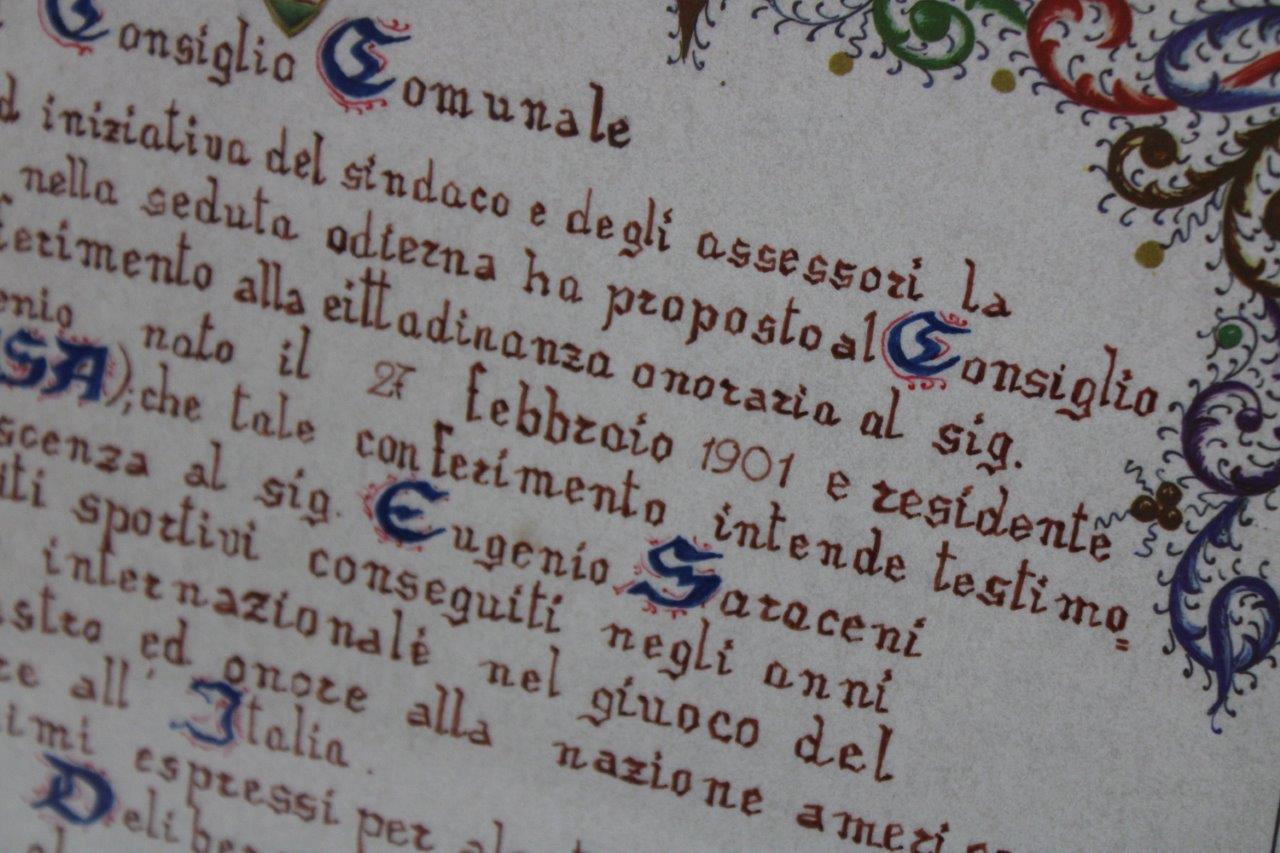 Consiglio Comunale
d iniziativa del sindaco e degli assessori la
nella seduta odierna ha proposto al Consiglio
ferimento alla cittadinanza onoraria al sig.
enio nato il 27 febbraio 1901 e residente
SA); che tale conferimento intende testimo=
scenza al sig. Eugenio Saraceni
iti sportivi conseguiti negli anni
internazionale nel giuoco del
stro ed onore alla nazione ameri
re all' Italia.
imi espressi per
Deliber